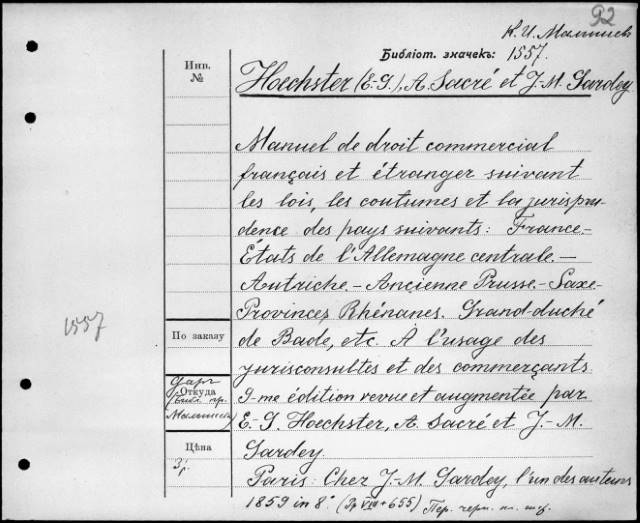 92
К. И. Малышев
Библіот. значекъ: 1557.
Инв. №
Hoechster (E.-G.), A. Sacré et J.-M. Gardey.
Manuel de droit commercial
français et étranger suivant
les lois, les coutumes et la jurispru-
dence des pays suivants: France.-
États de l'Allemagne centrale.-
Autriche.- Ancienne Prusse.- Saxe-
Provinces Rhénanes. Grand-duché
1557
По заказу
de Bade, etc. À l'usage des
jurisconsultes et des commerçants.
Даръ
Откуда
9-me édition revue et augmentée par
Малышева)
E.-G. Hoechster, A. Sacré et J.-M.
Цѣна
Gardey.
3р.
Paris: Chez J.-M. Gardey, l'un des auteurs
1859 in 8° (VIII+655) Пер. черн.